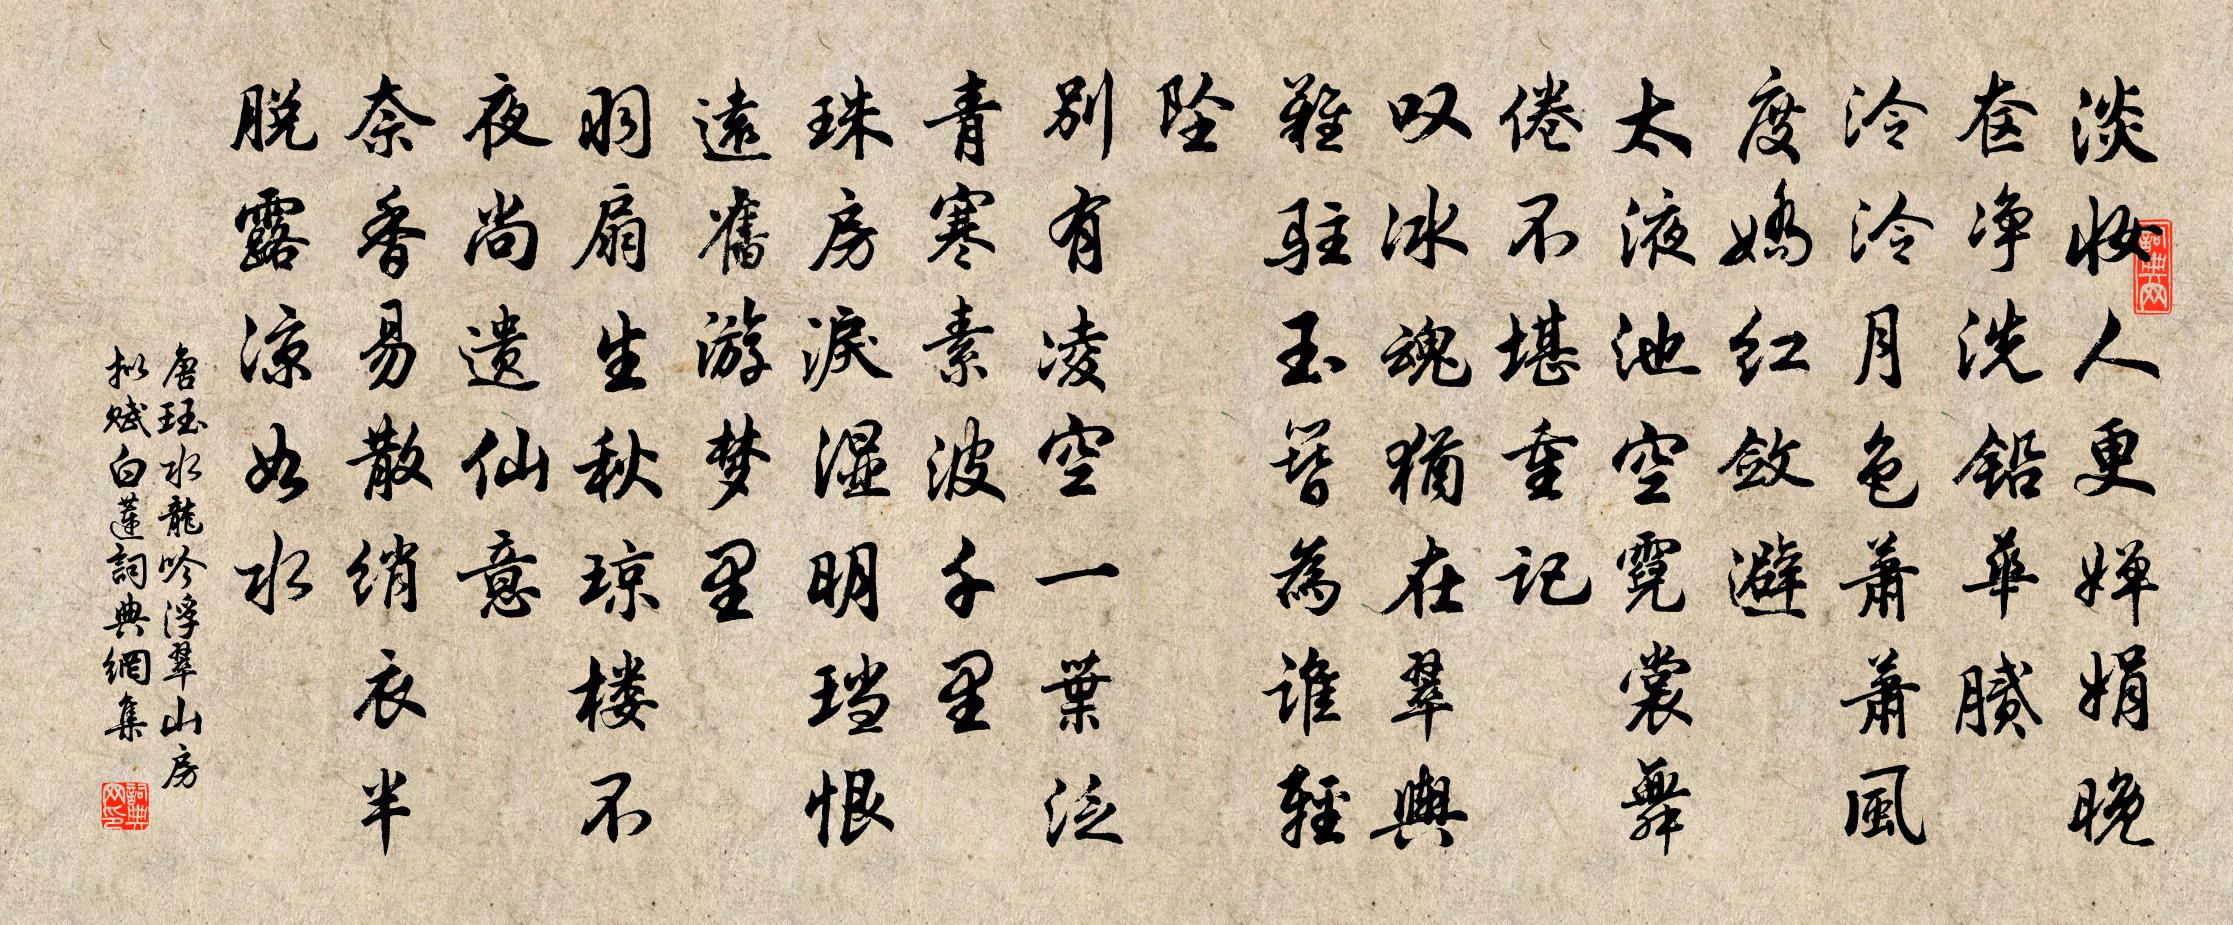 淡妆人更婵娟晚
奁净洗铅华腻
泠泠月色萧萧風
度娇红敛避
太液池空霓裳舞
倦不堪重记
叹冰魂猶在翠輿
难驻玉簪為谁輕
坠
别有凌空一葉泛
青寒素波千里
珠房淚湿明珰恨
遠舊游梦里
羽扇生秋琼楼不
夜尚遗仙意
奈香易散绡衣半
脱露涼如水
唐珏水龍吟浮翠山房
拟赋白莲詞典網集
詞典网
詞典网印